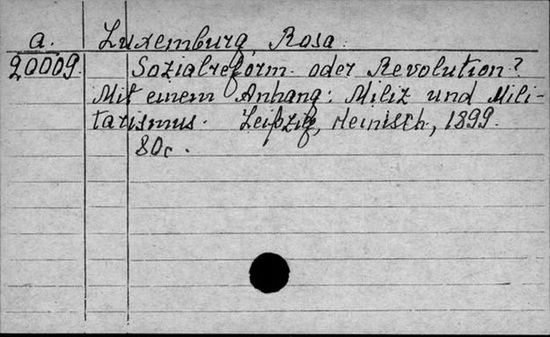 a. Luxemburg, Rosa.
20009. Sozialreform oder Revolution?
Mit einem Anhang: Miliz und Mili-
tarismus. Leipzig, Heinisch, 1899.
80c.